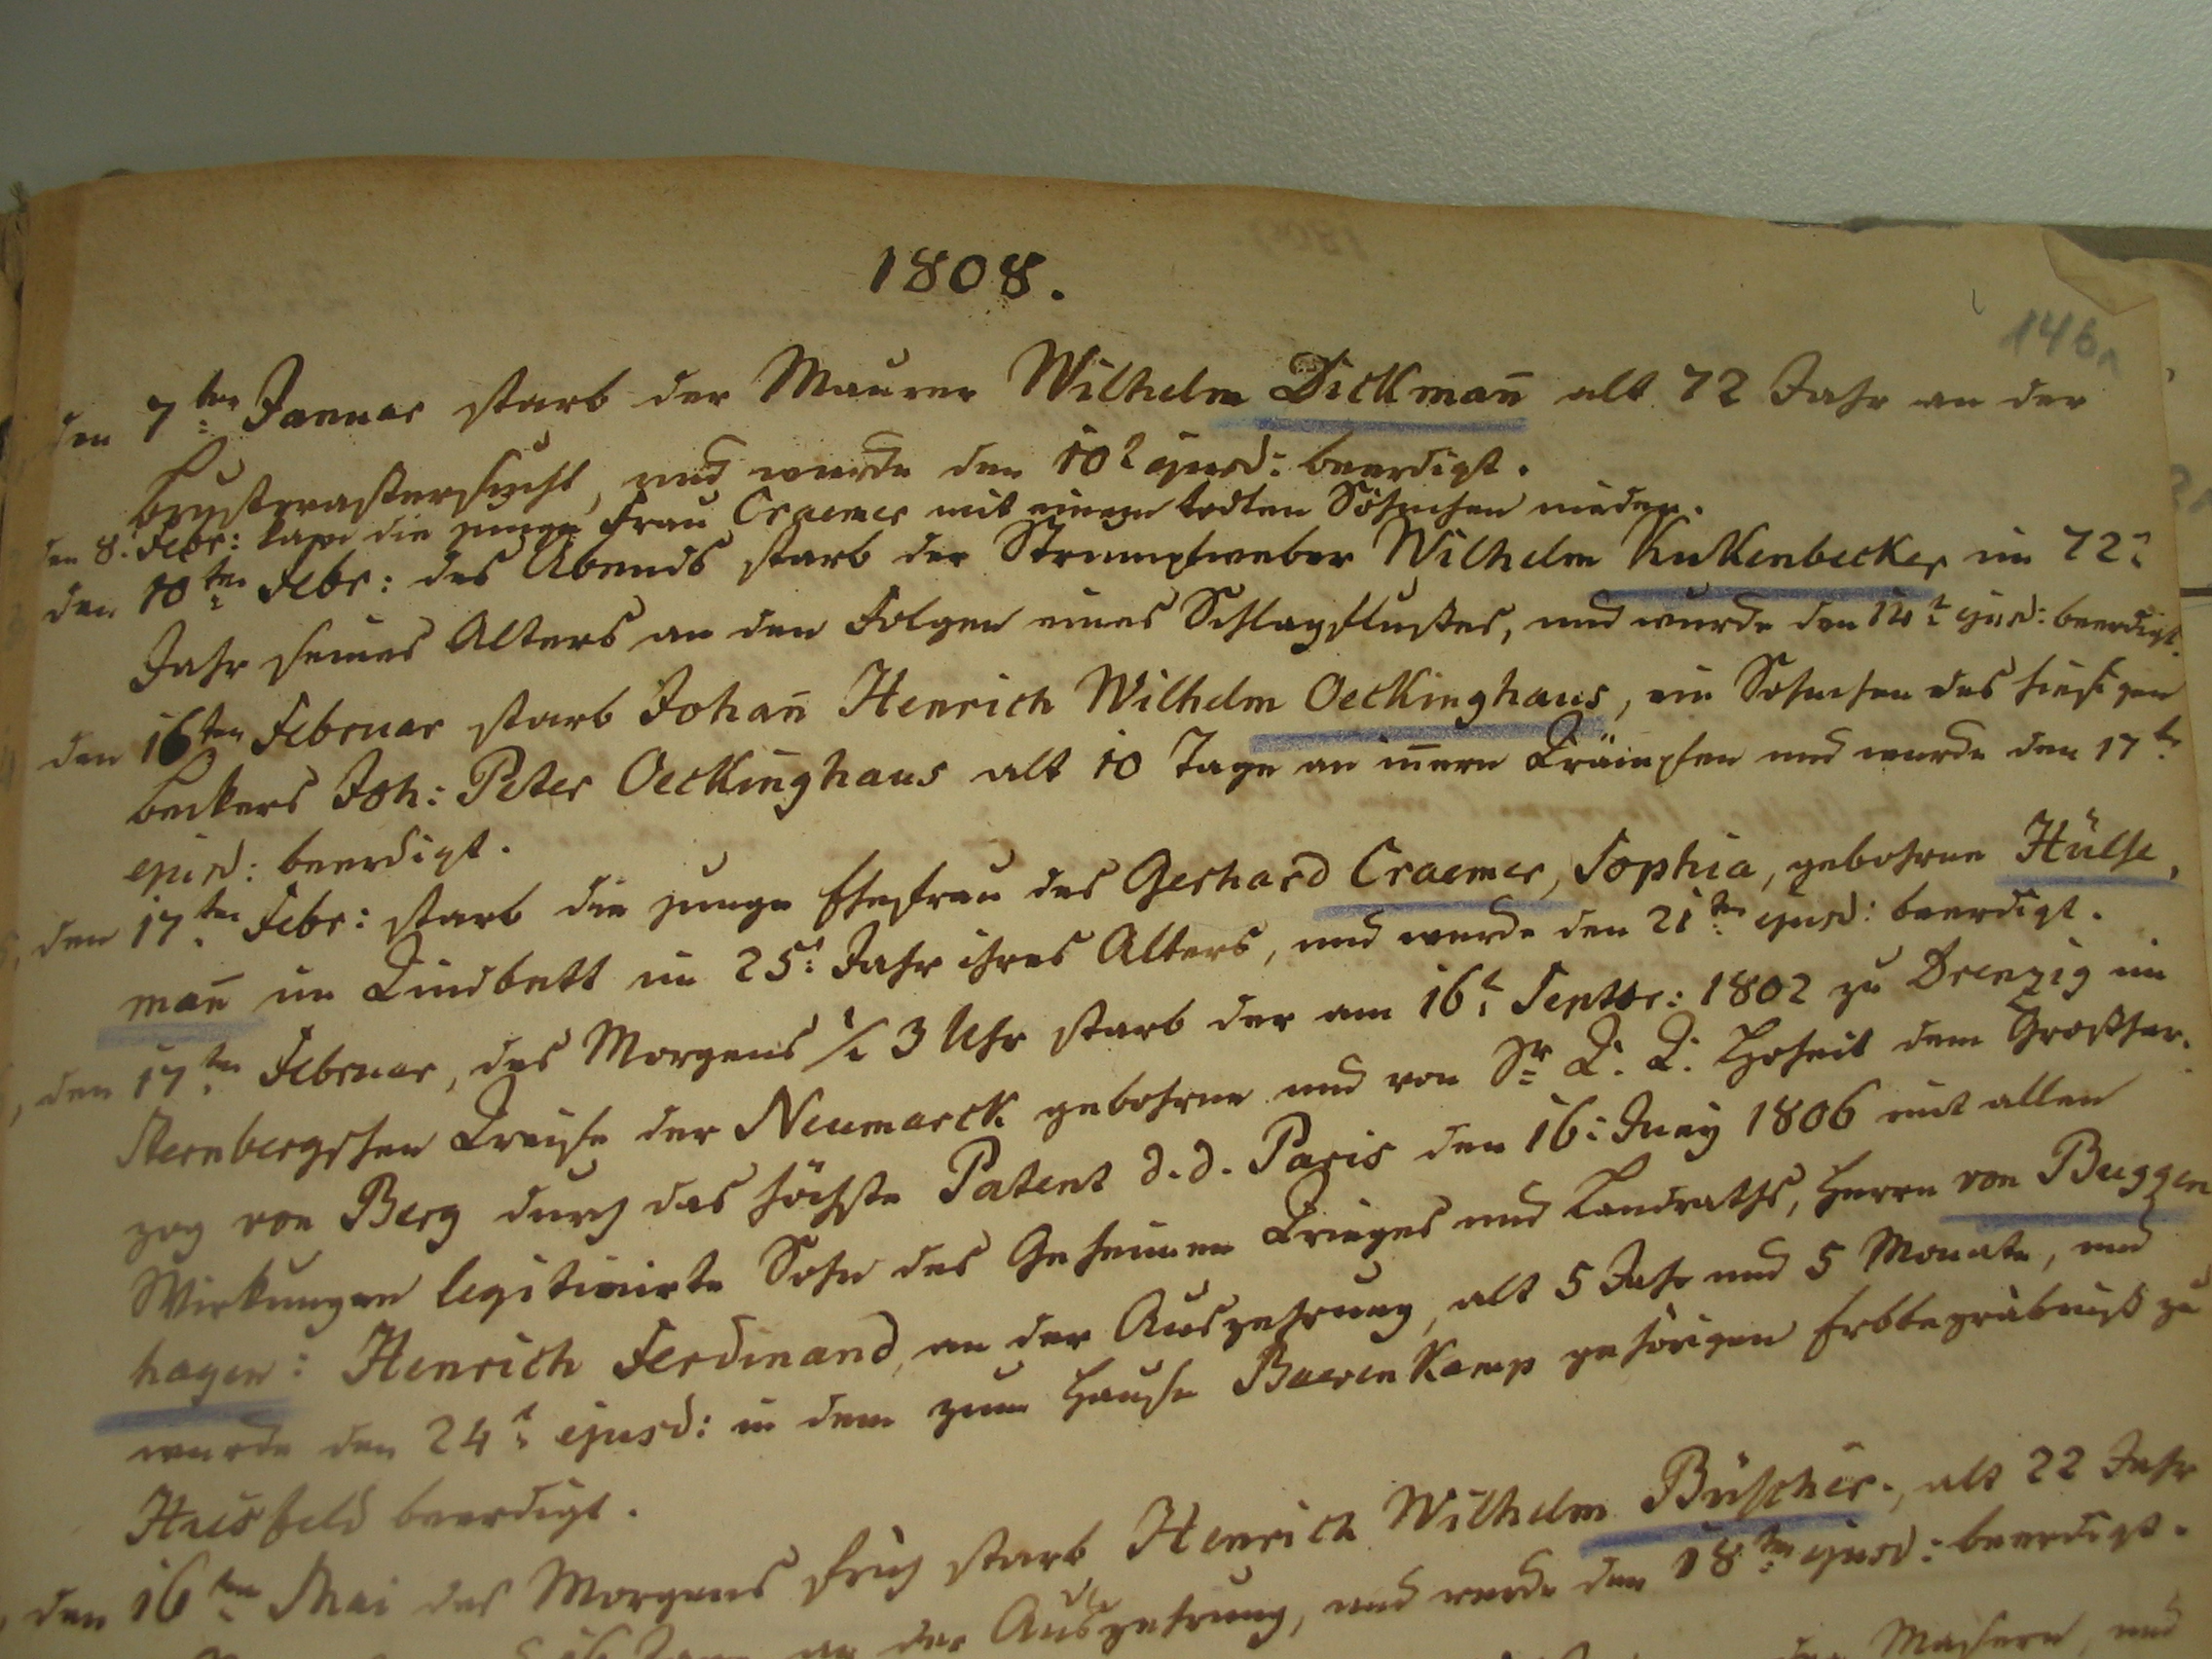 1808.
146
den 7ten Januar starb der Maurer Wilhelm Dickmañ alt 72 Jahr an der
Brustwassersucht, und wurde den 10t ejusd: beerdigt.
den 8t Febr: kam die junge Frau Craemer mit einem todten Söhnchen nieder.
den 10ten Febr: des Abends starb der Strumpfweber Wilhelm Kukkenbecker im 72t
Jahr seines Alters an den Folgen eines Schlagflußes, und wurde den 14t ejusd: beerdigt.
den 16ten Februar starb Johañ Henrich Wilhelm Oeckinghaus, ein Söhnchen des hiesigen
Beckers Joh: Peter Oeckinghaus alt 10 Tage an iñern Krämpfen und wurde den 17t
ejusd: beerdigt.
den 17ten Febr: starb die junge Ehefrau des Gerhard Craemer, Sophia, gebohrne Hülse,
mañ im Kindbett im 25t Jahr ihres Alters, und wurde den 21ten ejusd: beerdigt.
den 17ten Februar, des Morgens 1/2 3 Uhr starb der am 16t Septbr: 1802 zu Drenzig im
Sternbergschen Kreise der Neumarck gebohrne und von Sr K. K. Hoheit dem Großher,
zog von Berg durch das höchste Patent d. d. Paris den 16t Juny 1806 mit allen
Wirkungen legitimirte Sohn des Geheimen Krieges und Landraths, Herrn von Buggen
hagen: Henrich Ferdinand, an der Auszehrung, alt 5 Jahr und 5 Monate, und
wurde den 24t ejusd: in dem zum Hause Baerenkamp gehörigen Erbbegräbniß zu
Huisfeld beerdigt.
den 16ten Mai des Morgens früh starb Henrich Wilhelm Büscher, alt 22 Jahr
an der Auszehrung, und wurde den 18ten ejusd: beerdigt.
Masern, und